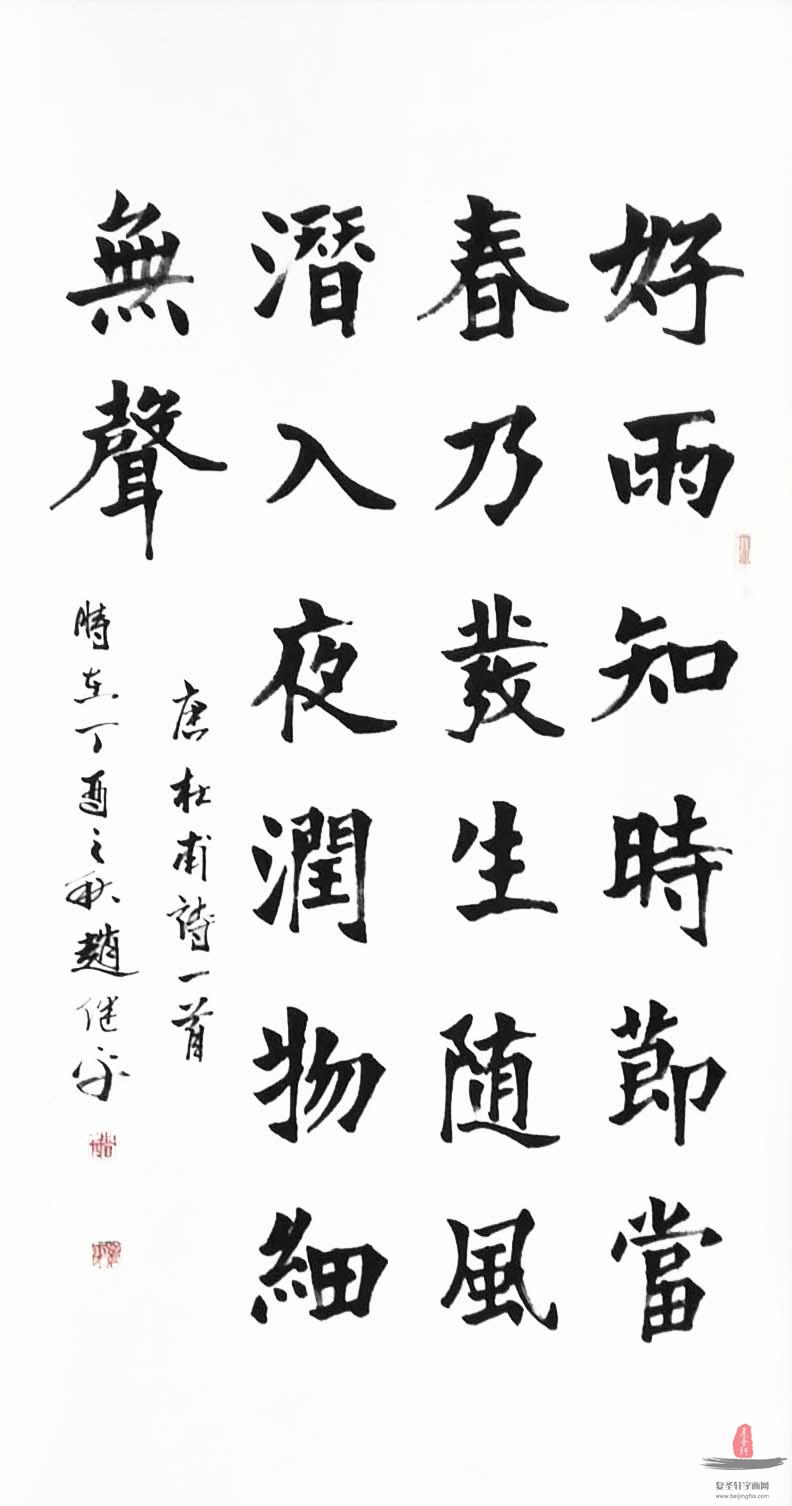 好雨知時節當
春乃發生随風
潛入夜潤物細
無聲
唐杜甫詩一首
時在丁酉之秋趙继平
复圣轩字画网
www.beijingfsx.com